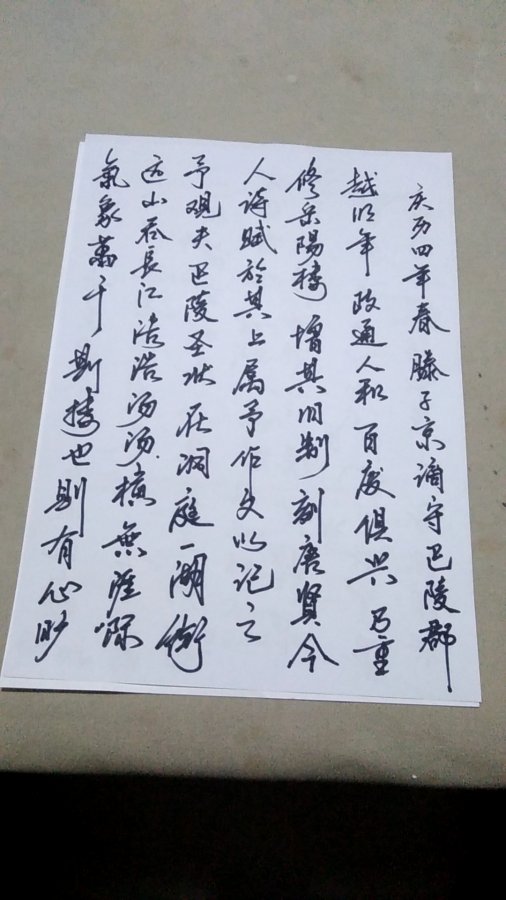 庆历四年春滕子京谪守巴陵郡
越明年政通人和百废俱兴乃重
修岳陽楼增其旧制刻唐贤今
人诗赋於其上属予作文以记之
予观夫巴陵圣状在洞庭一湖衔
远山吞長江浩浩汤汤横無涯際
氣象萬千斯楼也則有心旷